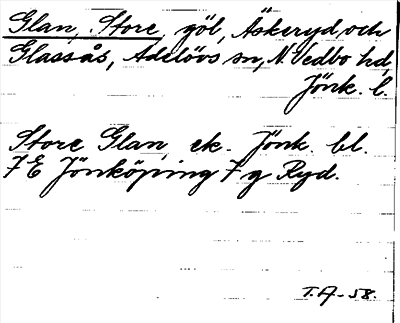 Glan, Store, göl, Äskeryd och
Glassås, Adelövs sn, N Vedbo hd,
Jönk. l.
Store Glan, ek. Jönk. bl.
7 E Jönköping 7 g Ryd.
T.A-58.